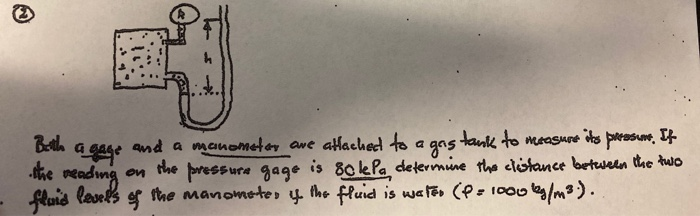 ②
h
Both a gage and a manometer are attached to a gas tank to measure its pressure. If
the reading on the pressure gage is 80 kPa, determine the distance between the two
fluid levels of the manometer if the fluid is water (ρ = 1000 kg/m³).